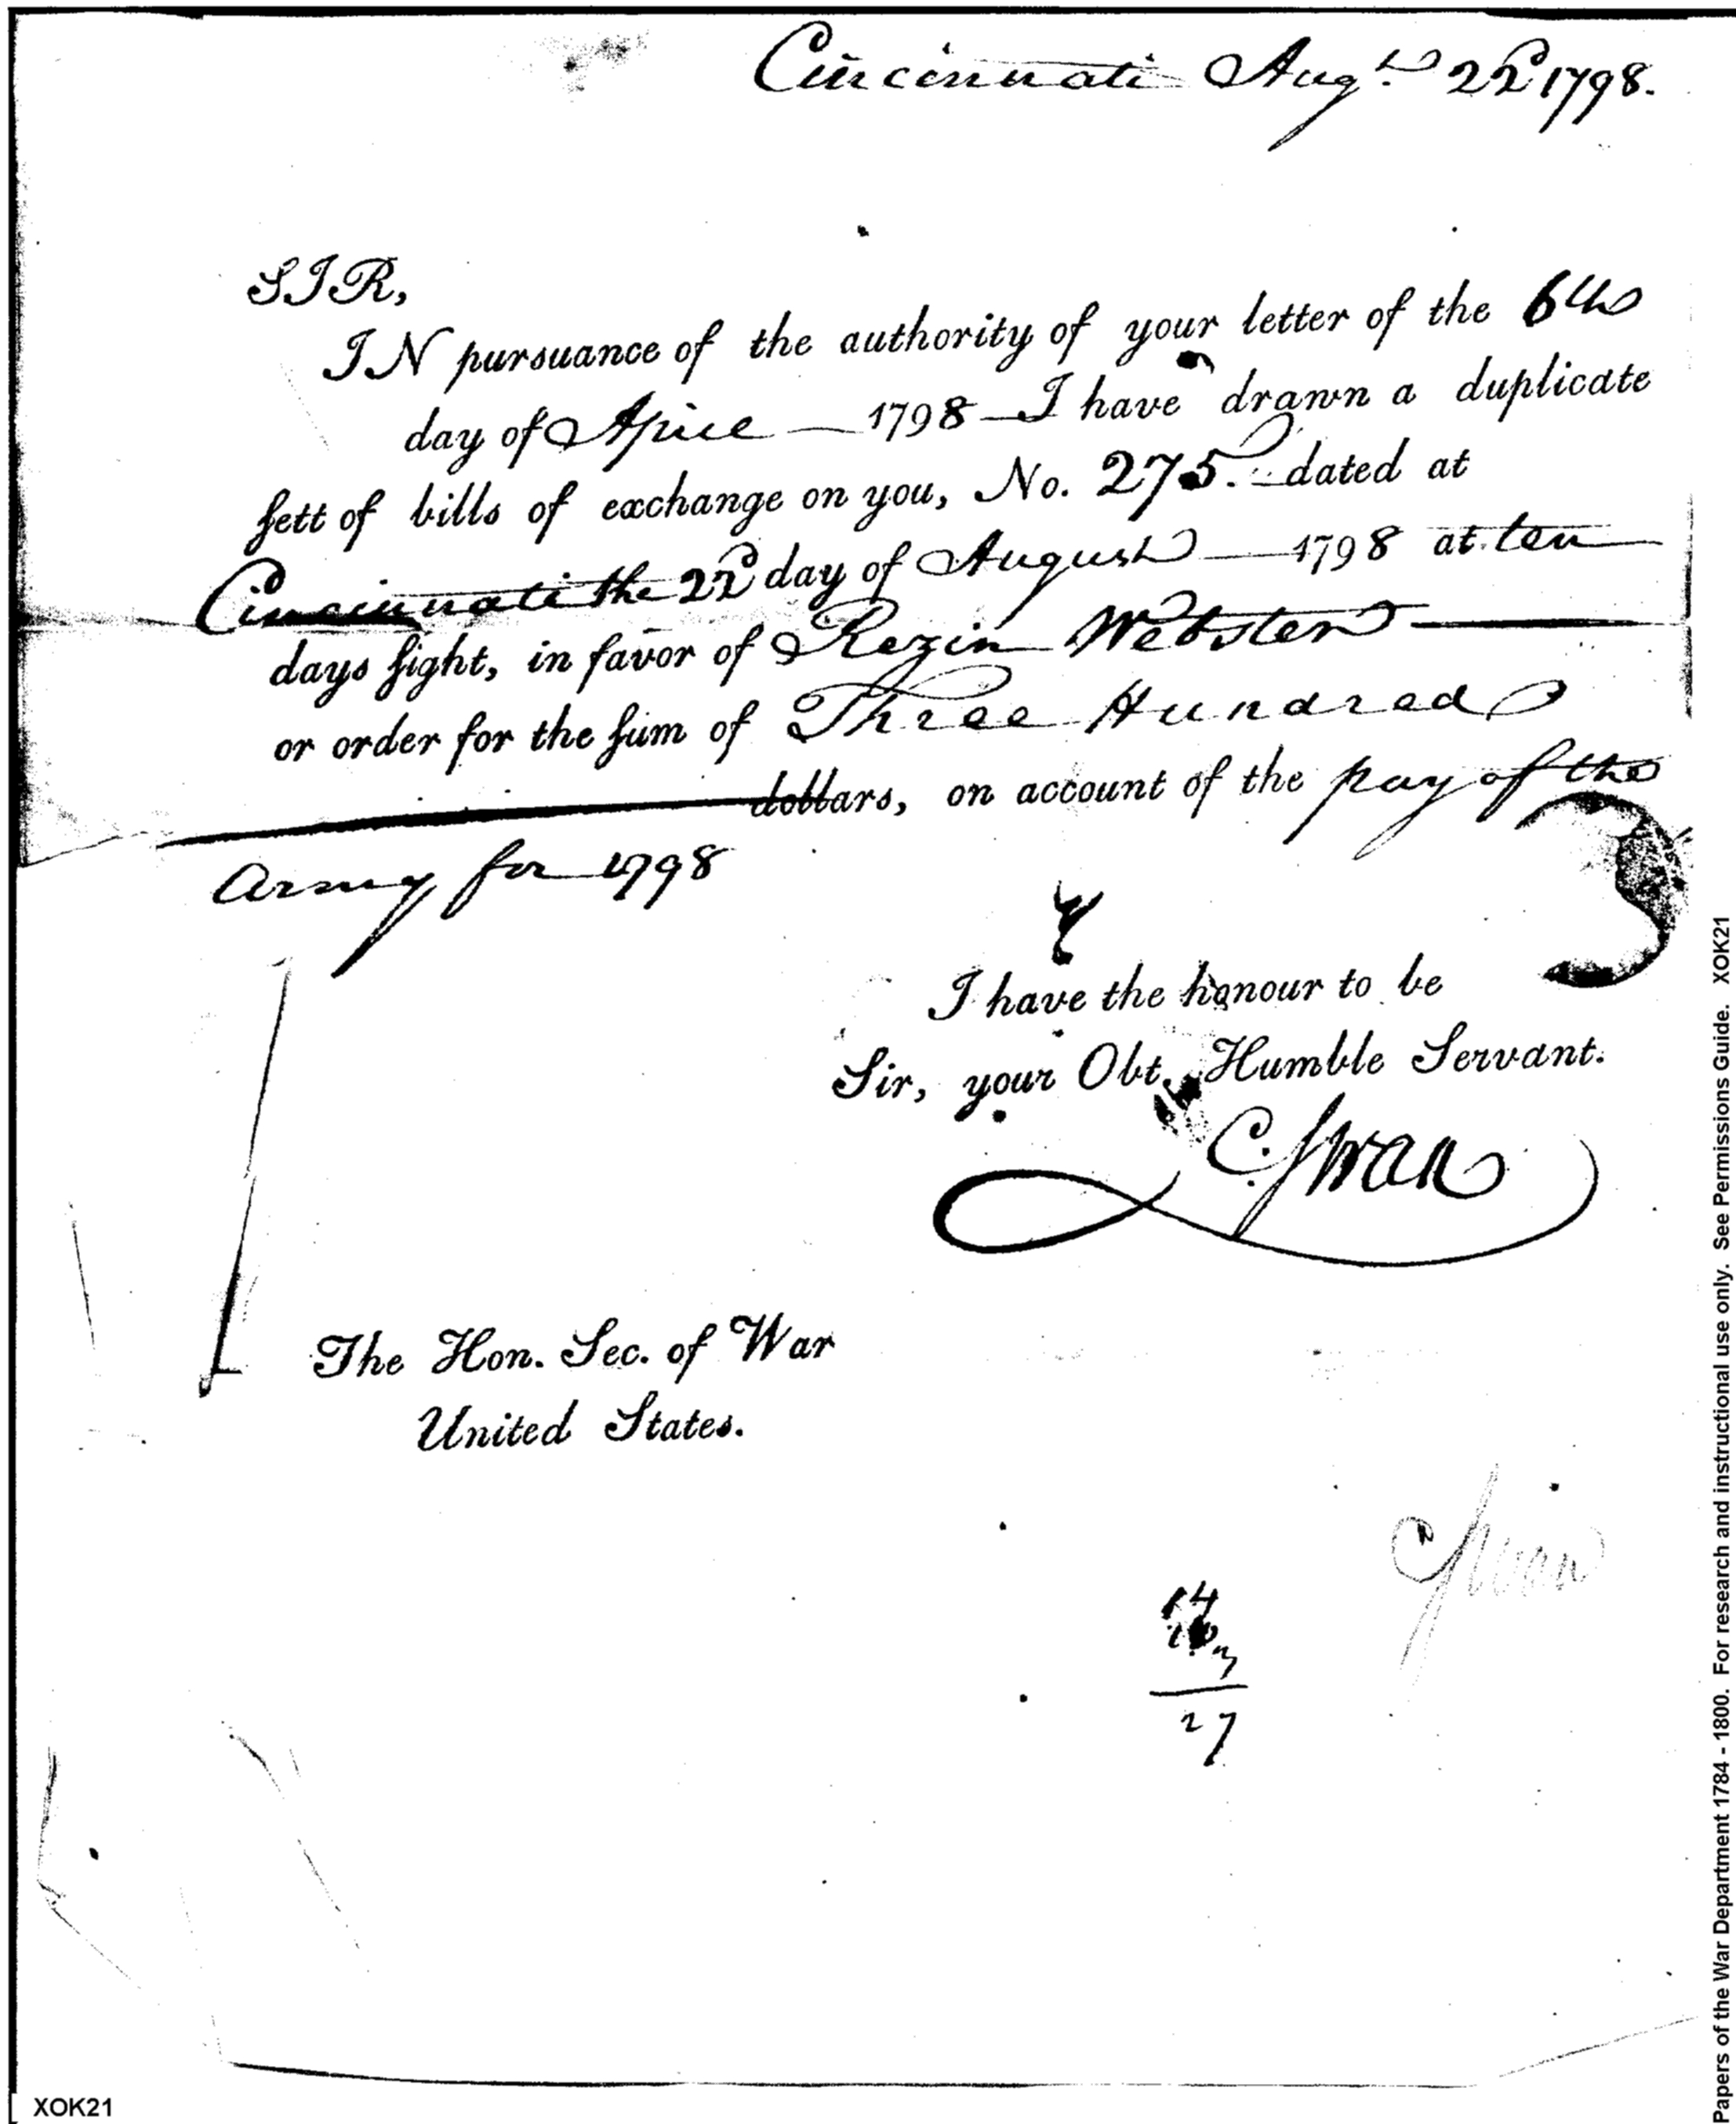 Cincinnati Augt. 22d 1798.
SIR,
IN pursuance of the authority of your letter of the 6th
day of April — 1798 — I have drawn a duplicate
sett of bills of exchange on you, No. 275. dated at
Cincinnati the 22d day of August — 1798 at ten
days sight, in favor of Rezin Webster —
or order for the sum of Three Hundred
dollars, on account of the pay of the
Army for 1798
I have the honour to be
Sir, your Obt. Humble Servant.
C. Swan
The Hon. Sec. of War
United States.
C Swan
14
27
XOK21
Papers of the War Department 1784 - 1800. For research and instructional use only. See Permissions Guide. XOK21